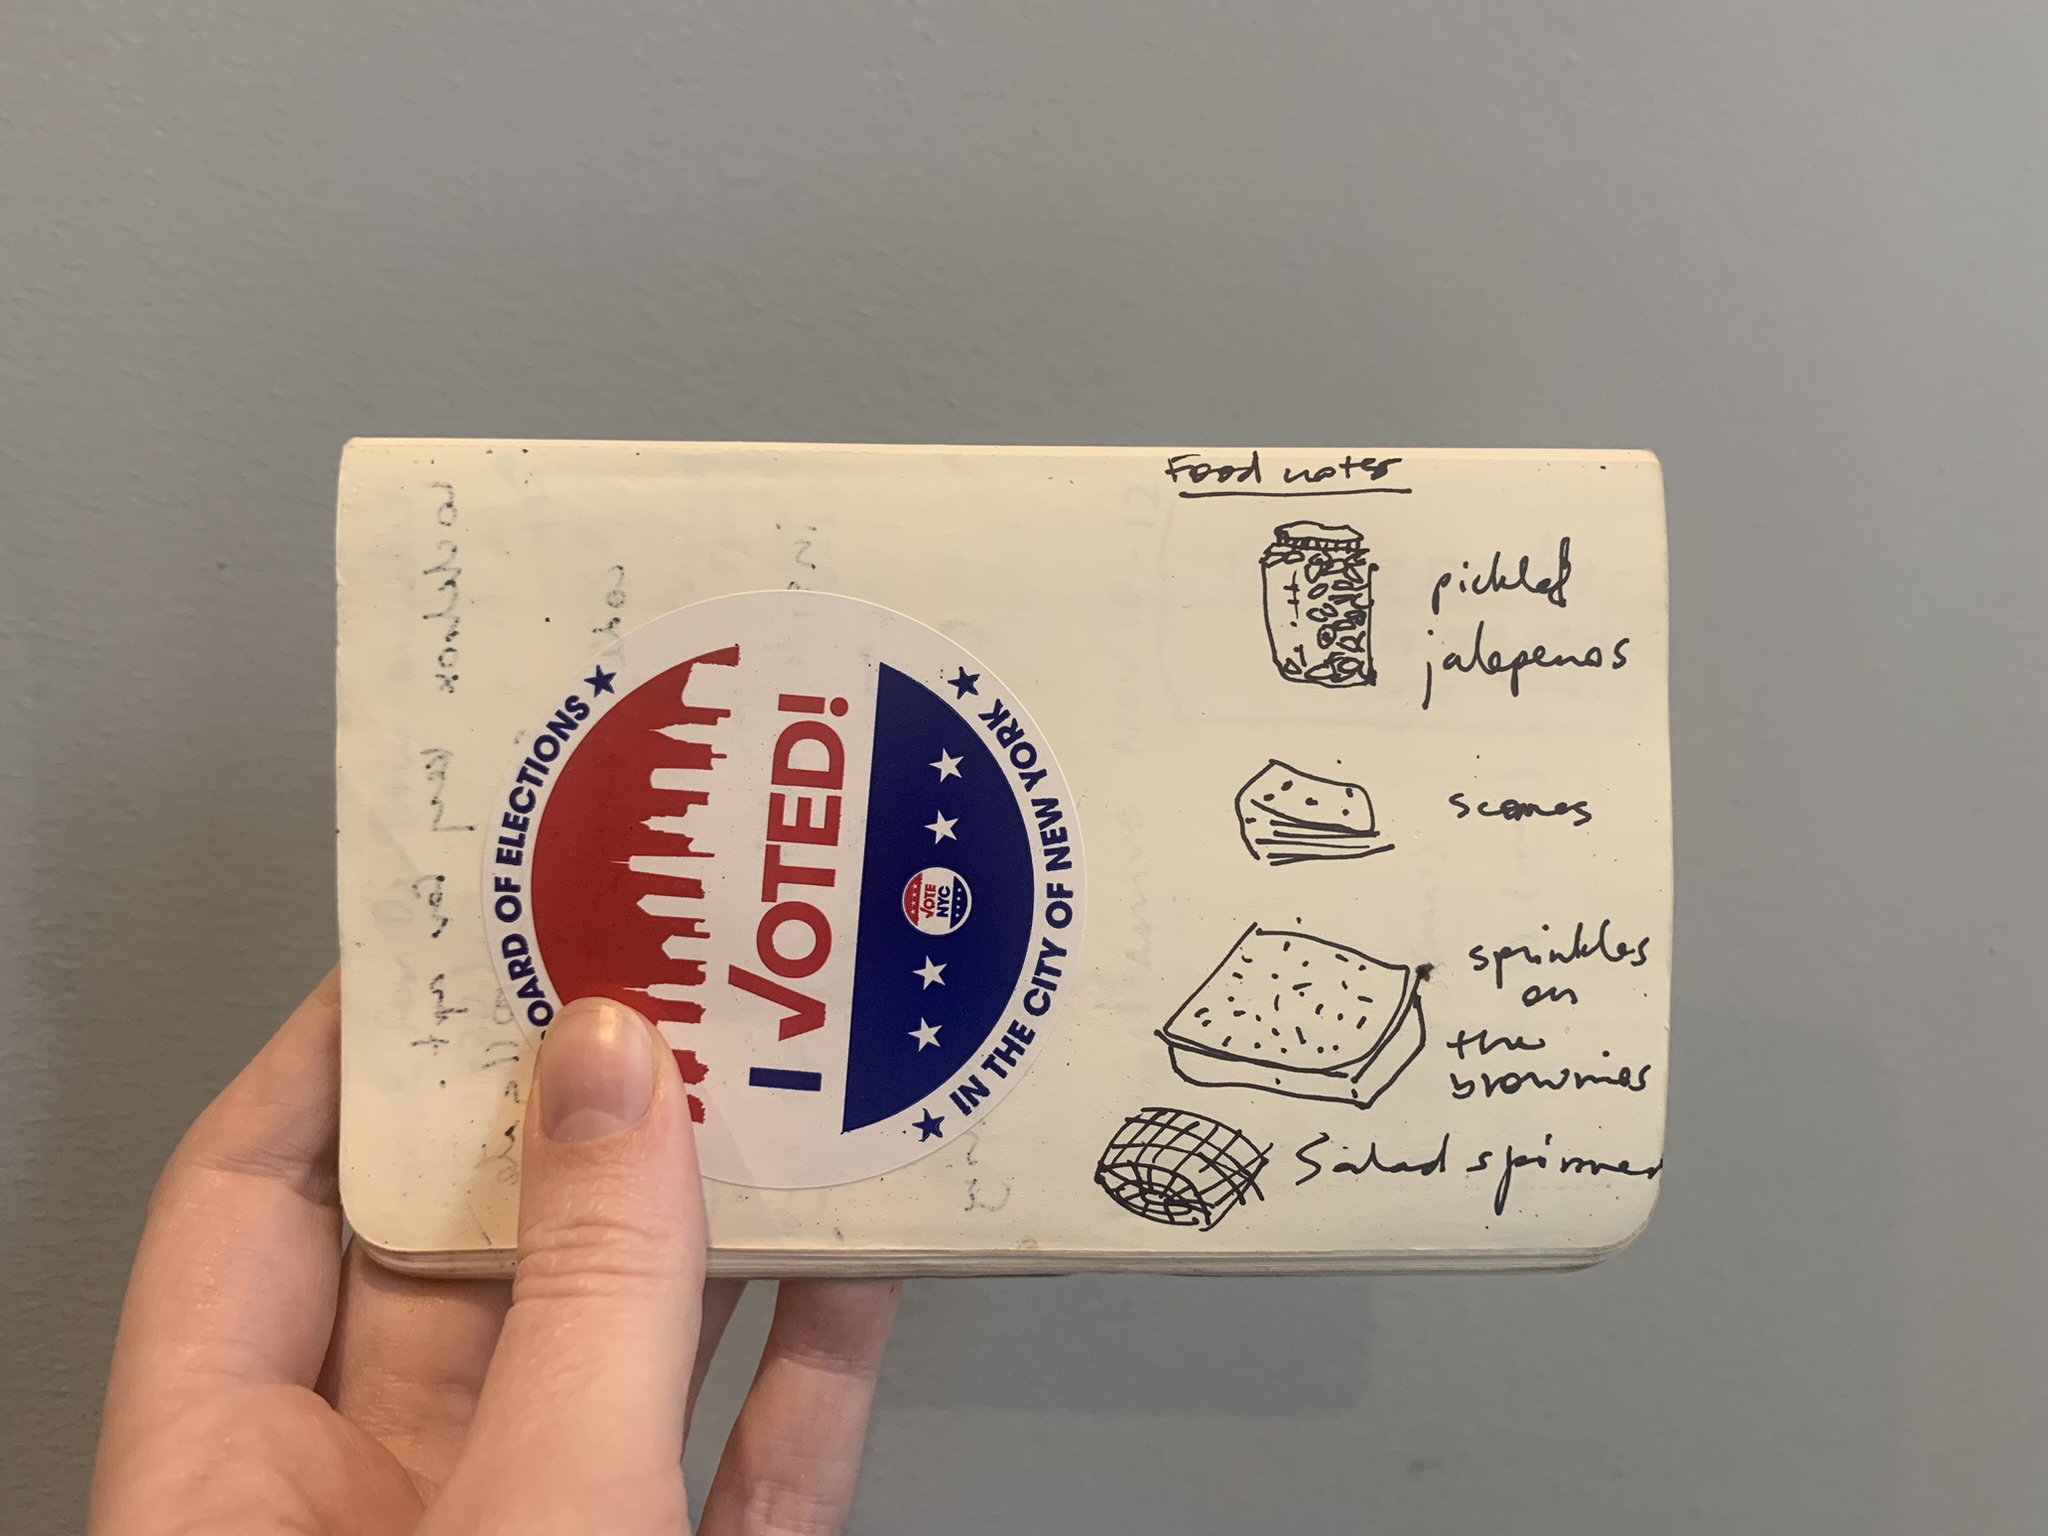 Food notes
pickled
jalepenos
scones
sprinkles
on
the
brownies
Salad spinner
BOARD OF ELECTIONS
I VOTED!
VOTE
NYC
IN THE CITY OF NEW YORK